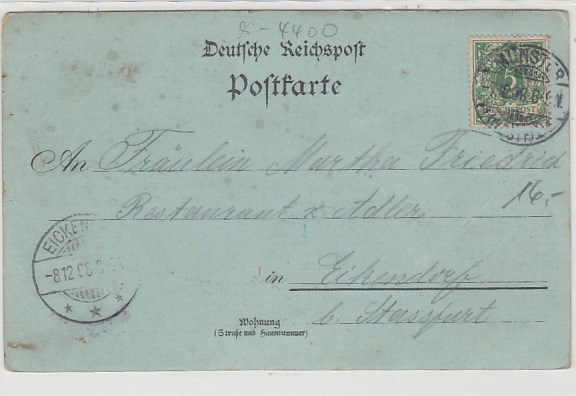 X-4400
Deutsche Reichspost
Postkarte
MÜNSTER
5
An Fräulein Martha Friedrich
Restaurant z. Adler
16.-
EICKEN
-8.12.98
in Eikendorf
b. Stassfurt
Wohnung
(Straße und Hausnummer)